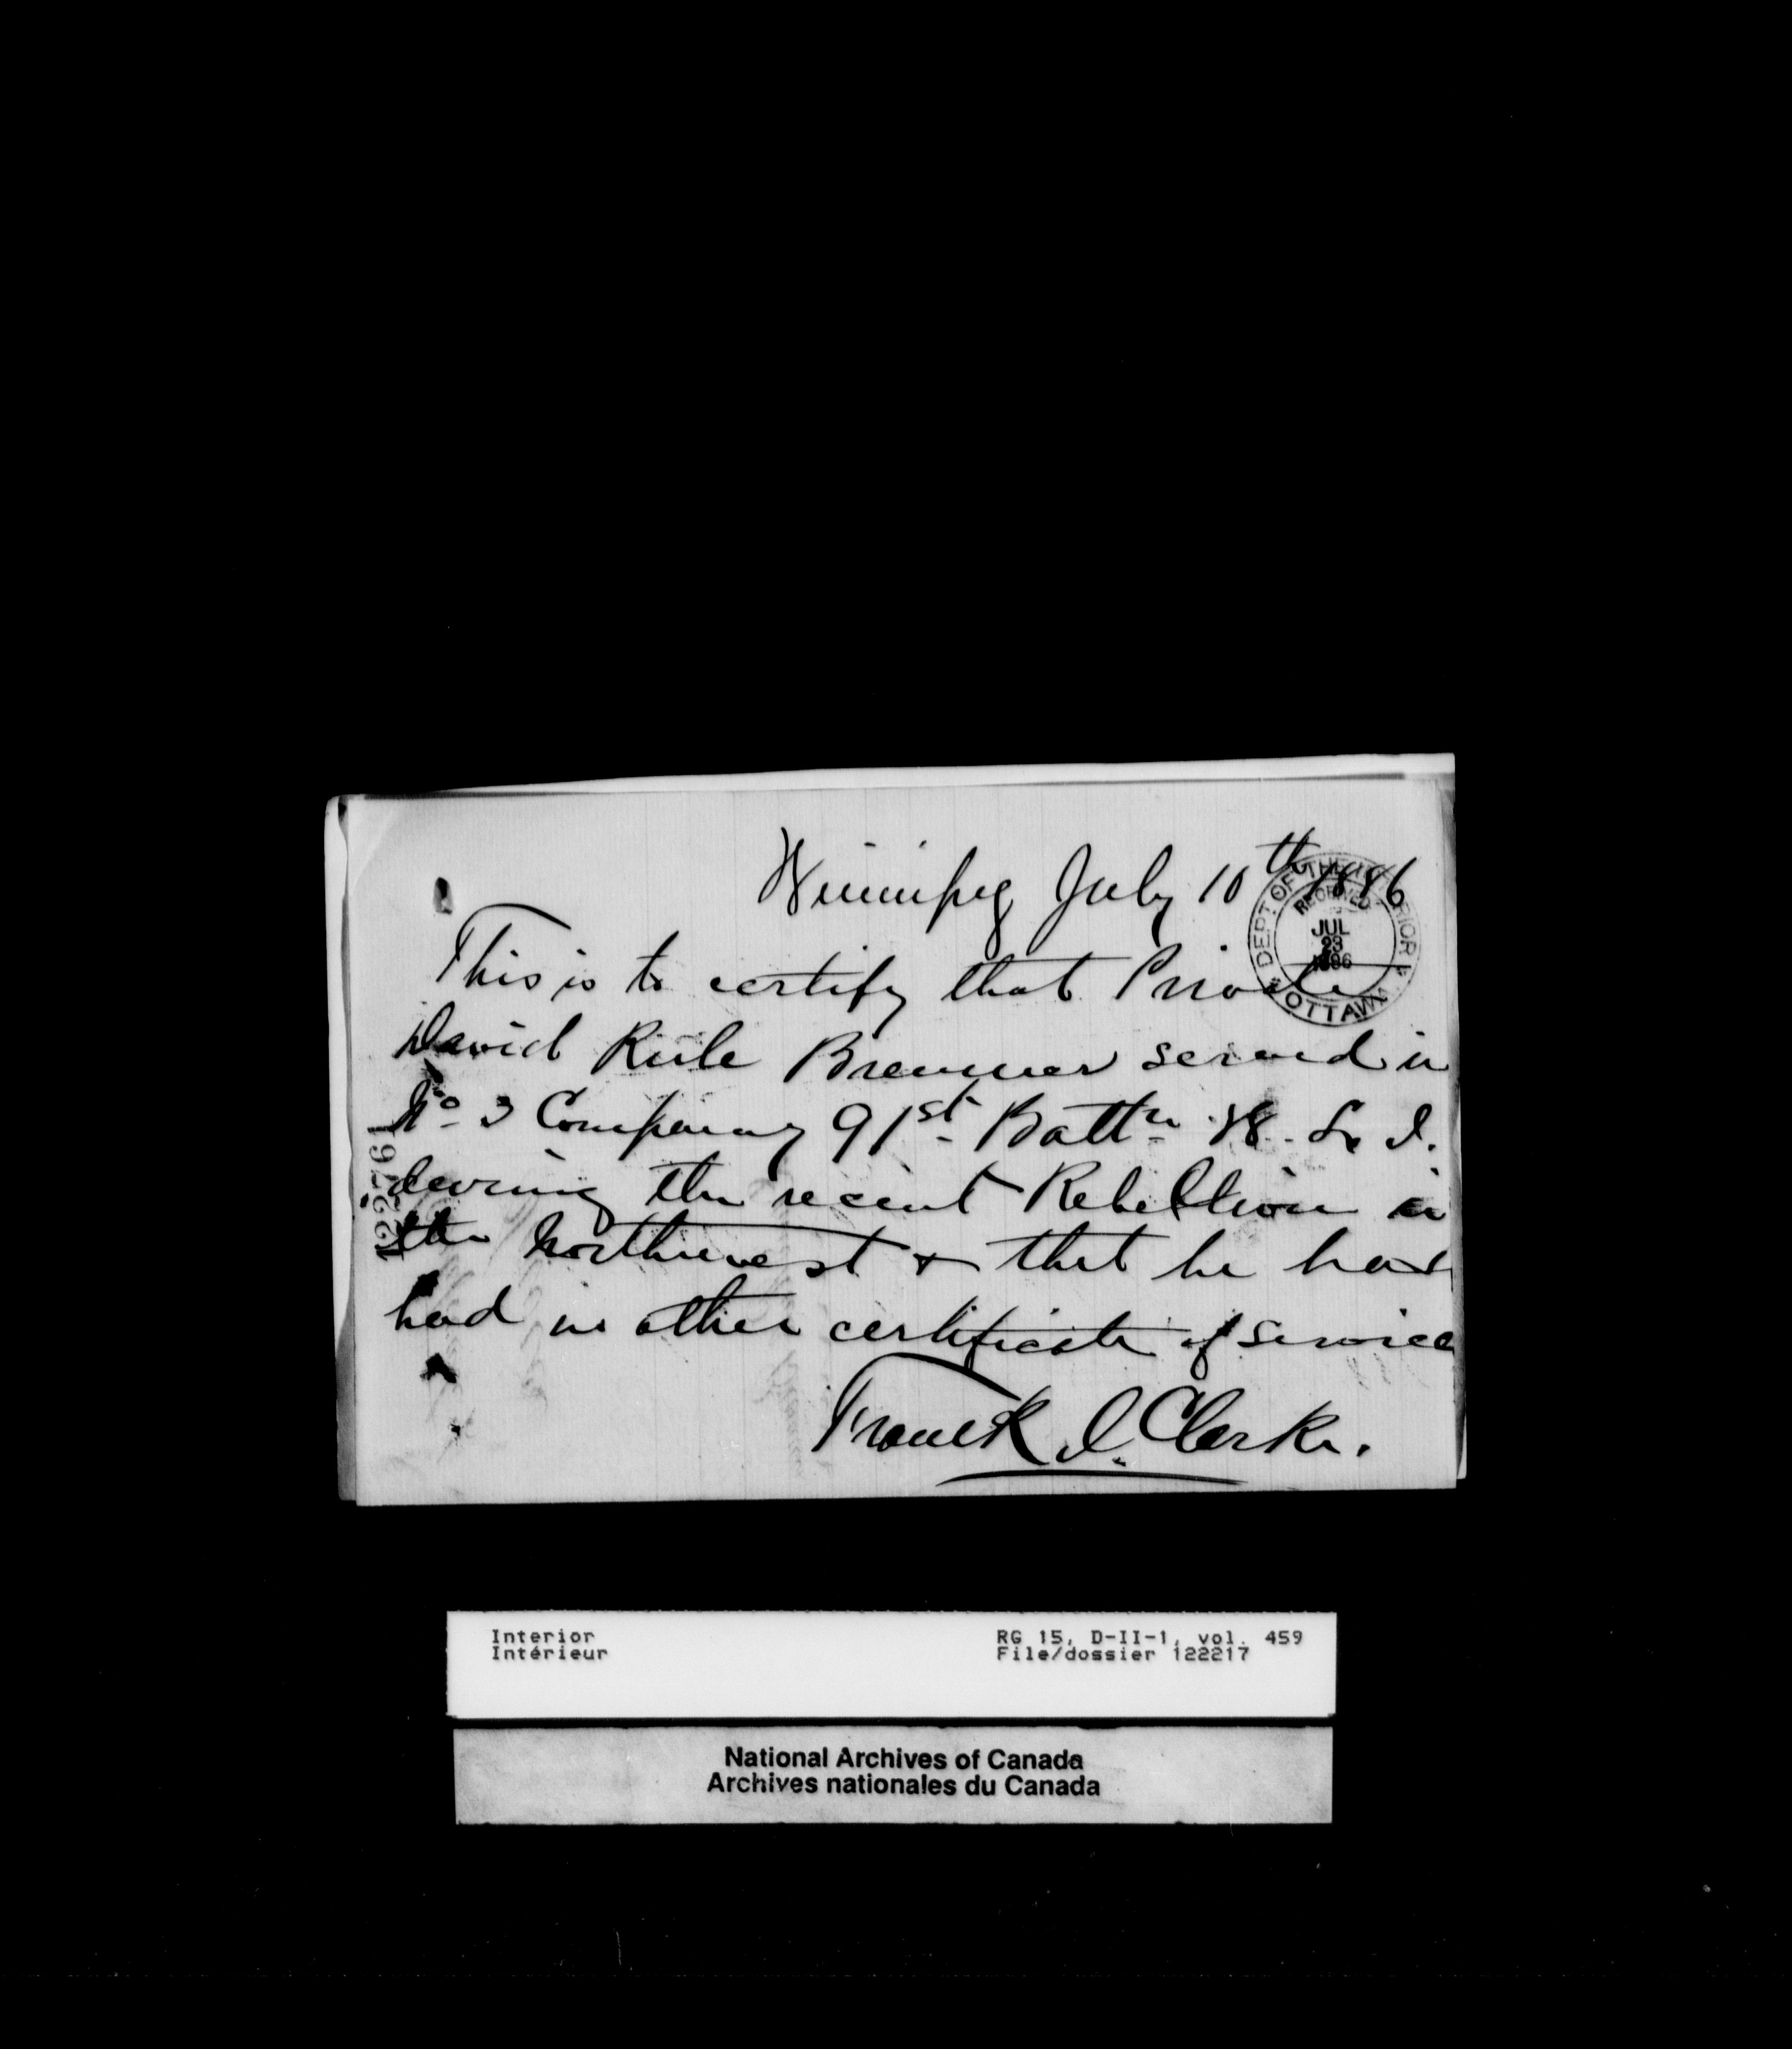 Winnipeg July 10th 1886
DEPT OF THE INTERIOR
RECEIVED
JUL
23
1886
OTTAWA
This is to certify that Private
David Rule Bremner served in
No 3 Company 91st Battn W. L. I.
during the recent Rebellion in
the Northwest & that he has
had no other certificate of service
Frank I. Clarke.
122761
Interior
Intérieur
RG 15, D-II-1, vol. 459
File/dossier 122217
National Archives of Canada
Archives nationales du Canada